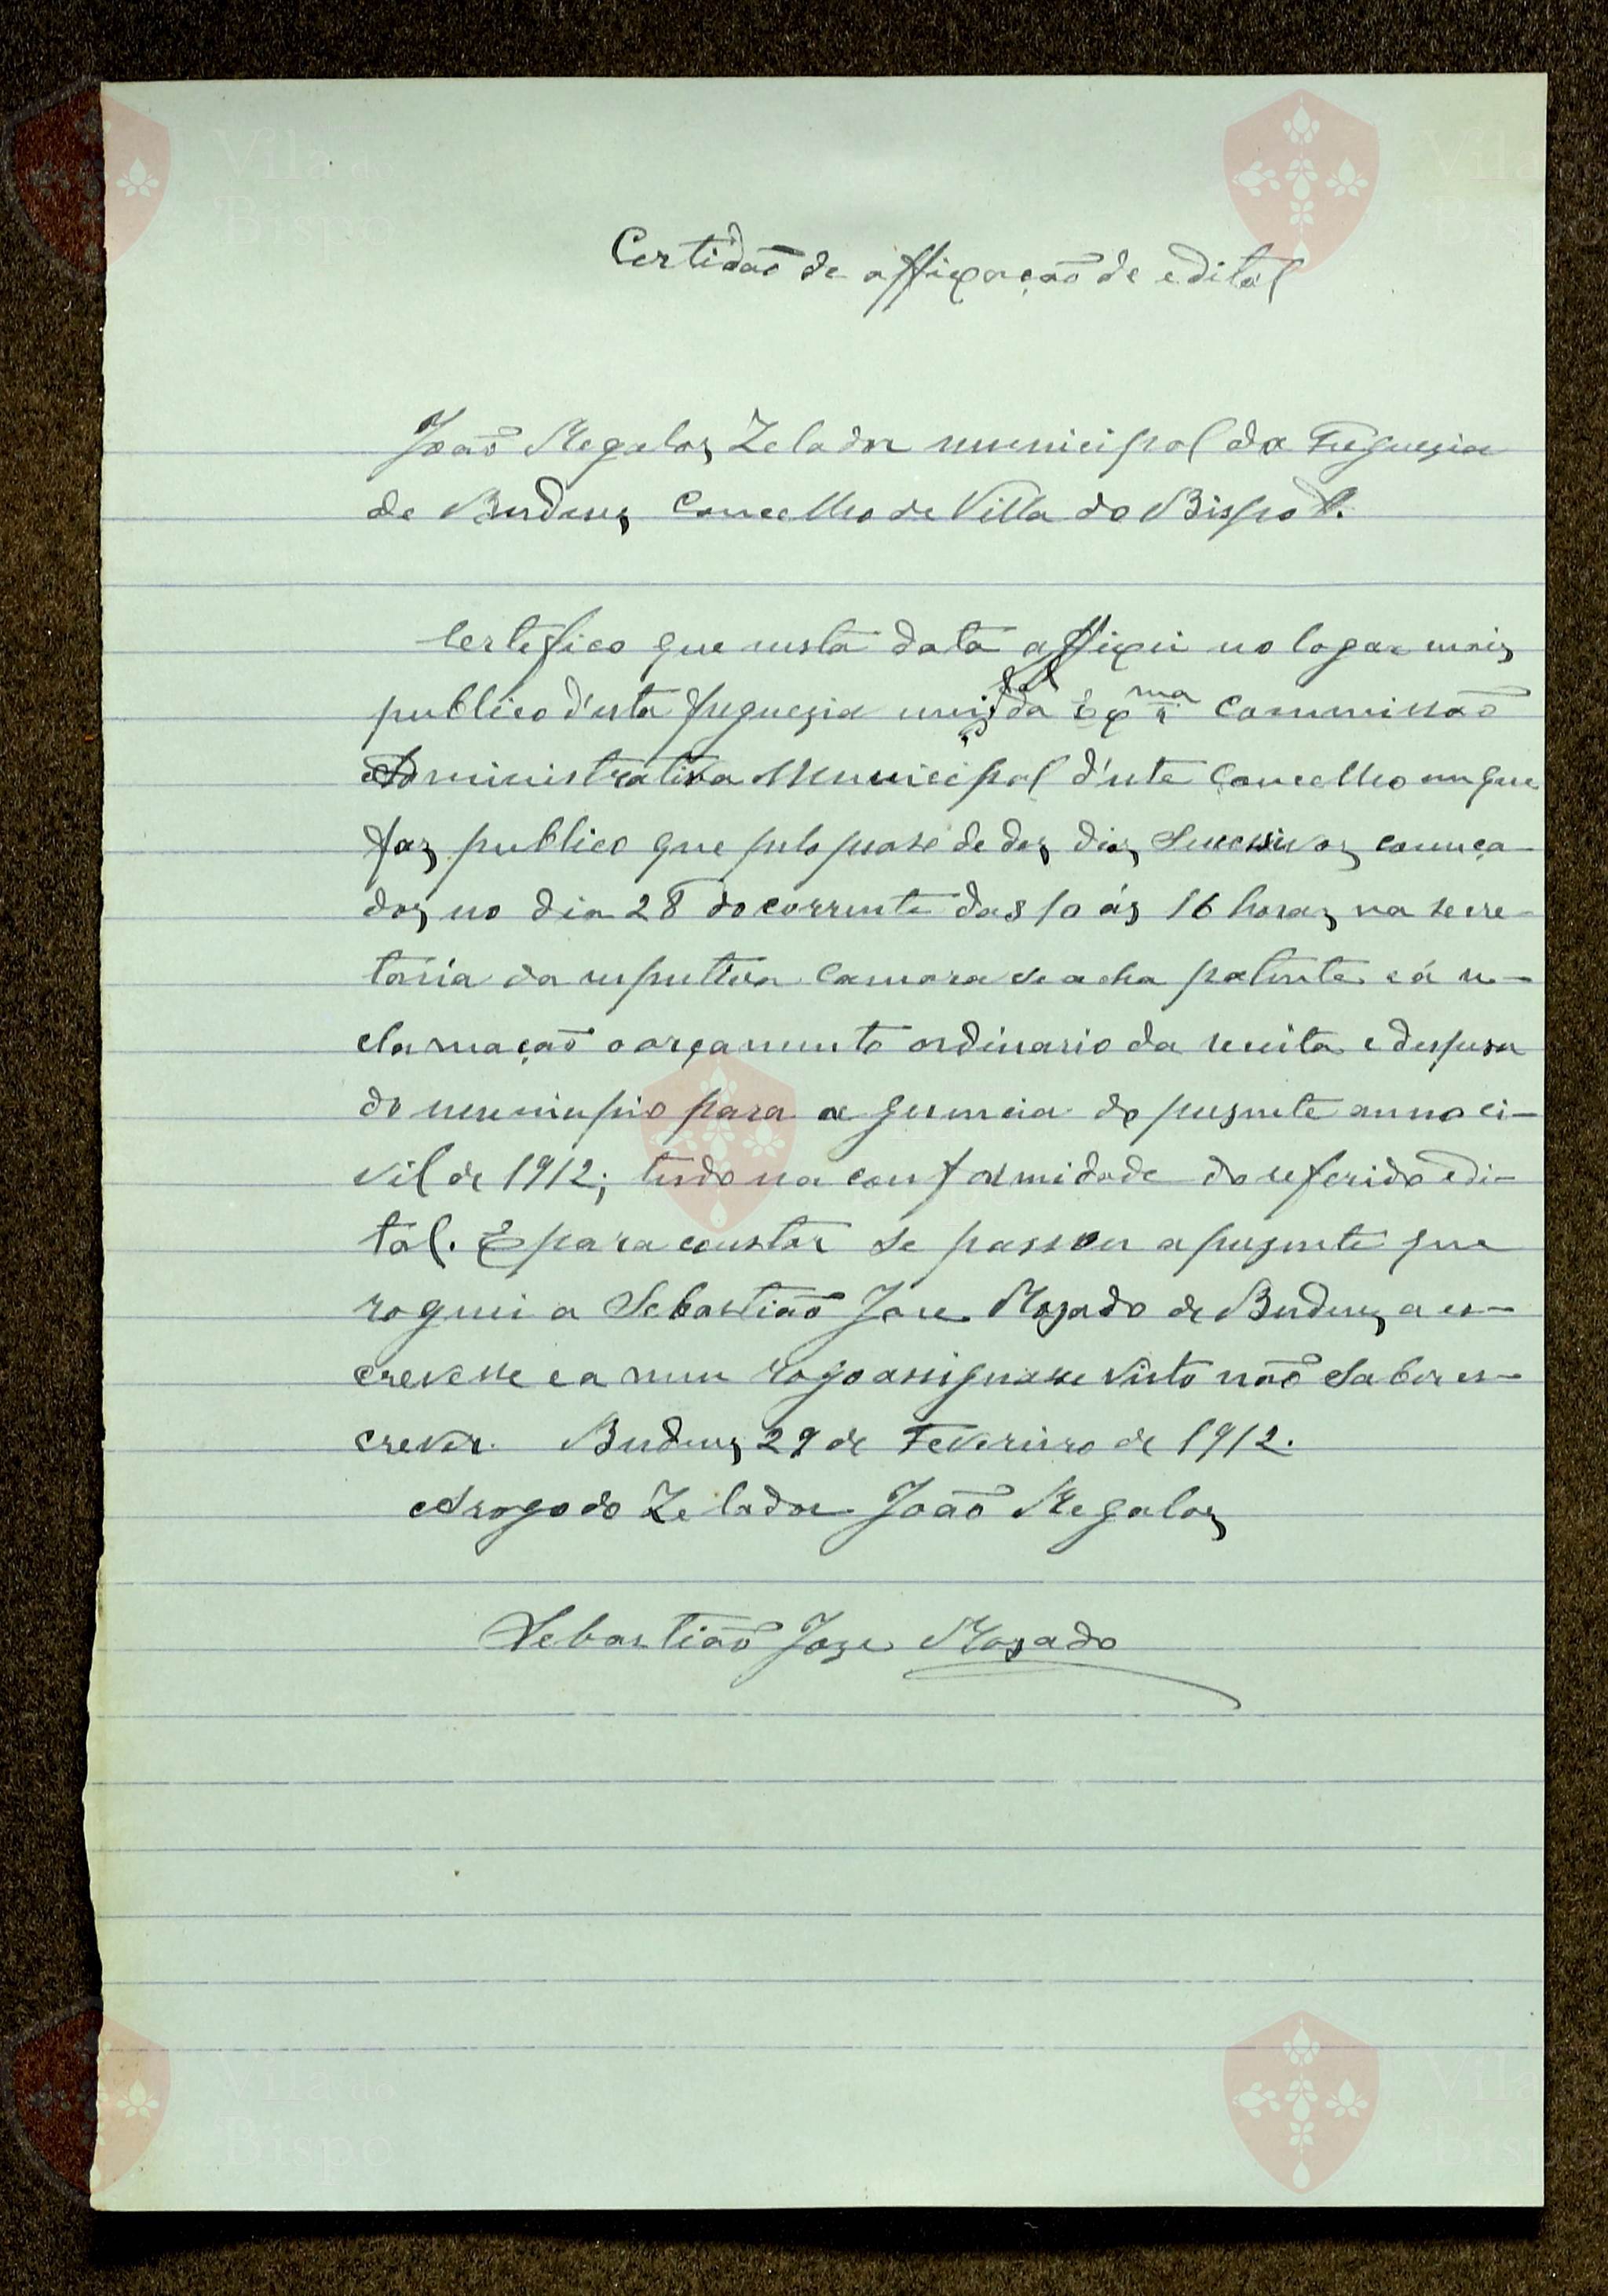 Certidão de affixação de edital
João Regalos, Zelador municipal da Freguezia
de Budens, Concelho de Villa do Bispo &.
Certefico que nesta data affixei no logar mais
publico d'esta freguezia um da Exma Commissão
Administrativa Municipal d'este Concelho em que
faz publico que pelo praso de dez dias Sucessivos, começa-
dos no dia 28 do corrente das 10 ás 16 horas na secre-
taria da respectiva Camara se acha patente e á re-
clamação o orçamento ordinario da receita e despesa
do municipio para a gerencia do presente anno ci-
vil de 1912; tudo na conformidade do referido edi-
tal. E para constar se passou a presente que
roguei a Sebastião Jose Mozado de Budens, a es-
crevesse e a meu rogo assignasse visto não saber es-
crever. Budens, 29 de Fevereiro de 1912.
A rogo do Zelador João Regalos
Sebastião Joze Mozado
Vila do
Bispo